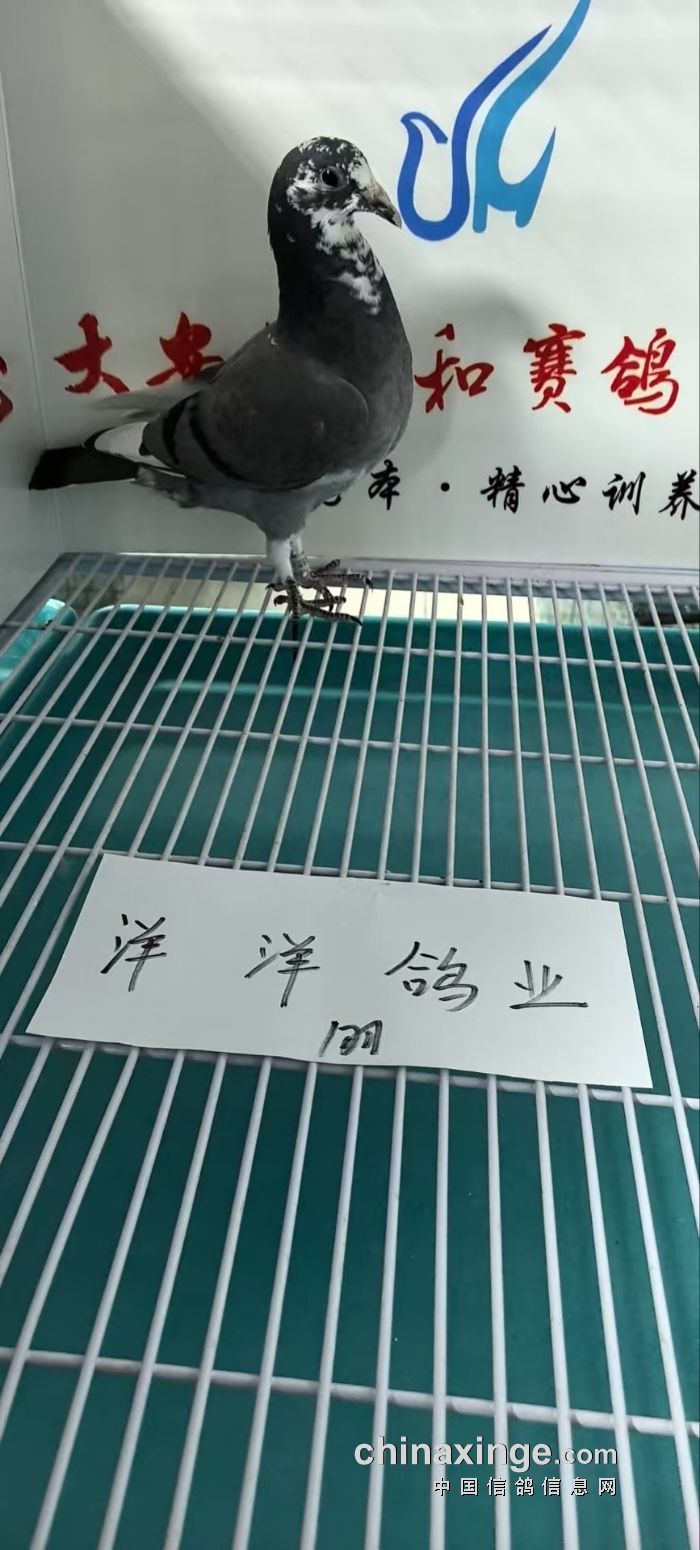 大安 和赛鸽
本·精心训养
洋洋鸽业
chinaxinge.com
中国信鸽信息网